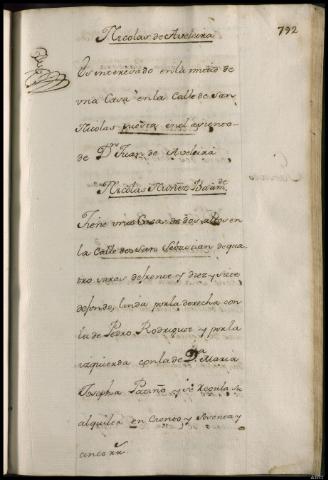 792
Nicolas de Aveleira
Es interesado en la mitad de
vna Casa en la Calle de San
Nicolas puesta en el asiento
de Dn Juan de Aveleira
Nicolas Nuñez
Tiene vna Casa de dos altos en
la Calle de San Sebastian de qua
tro varas de frente y diez y siete
de fondo, linda por la derecha con
la de Pedro Rodriguez y por la
izquierda con la de Da Maria
Josepha Patiño y se Regula su
alquiler en Ciento y Sesenta y
cinco Rs